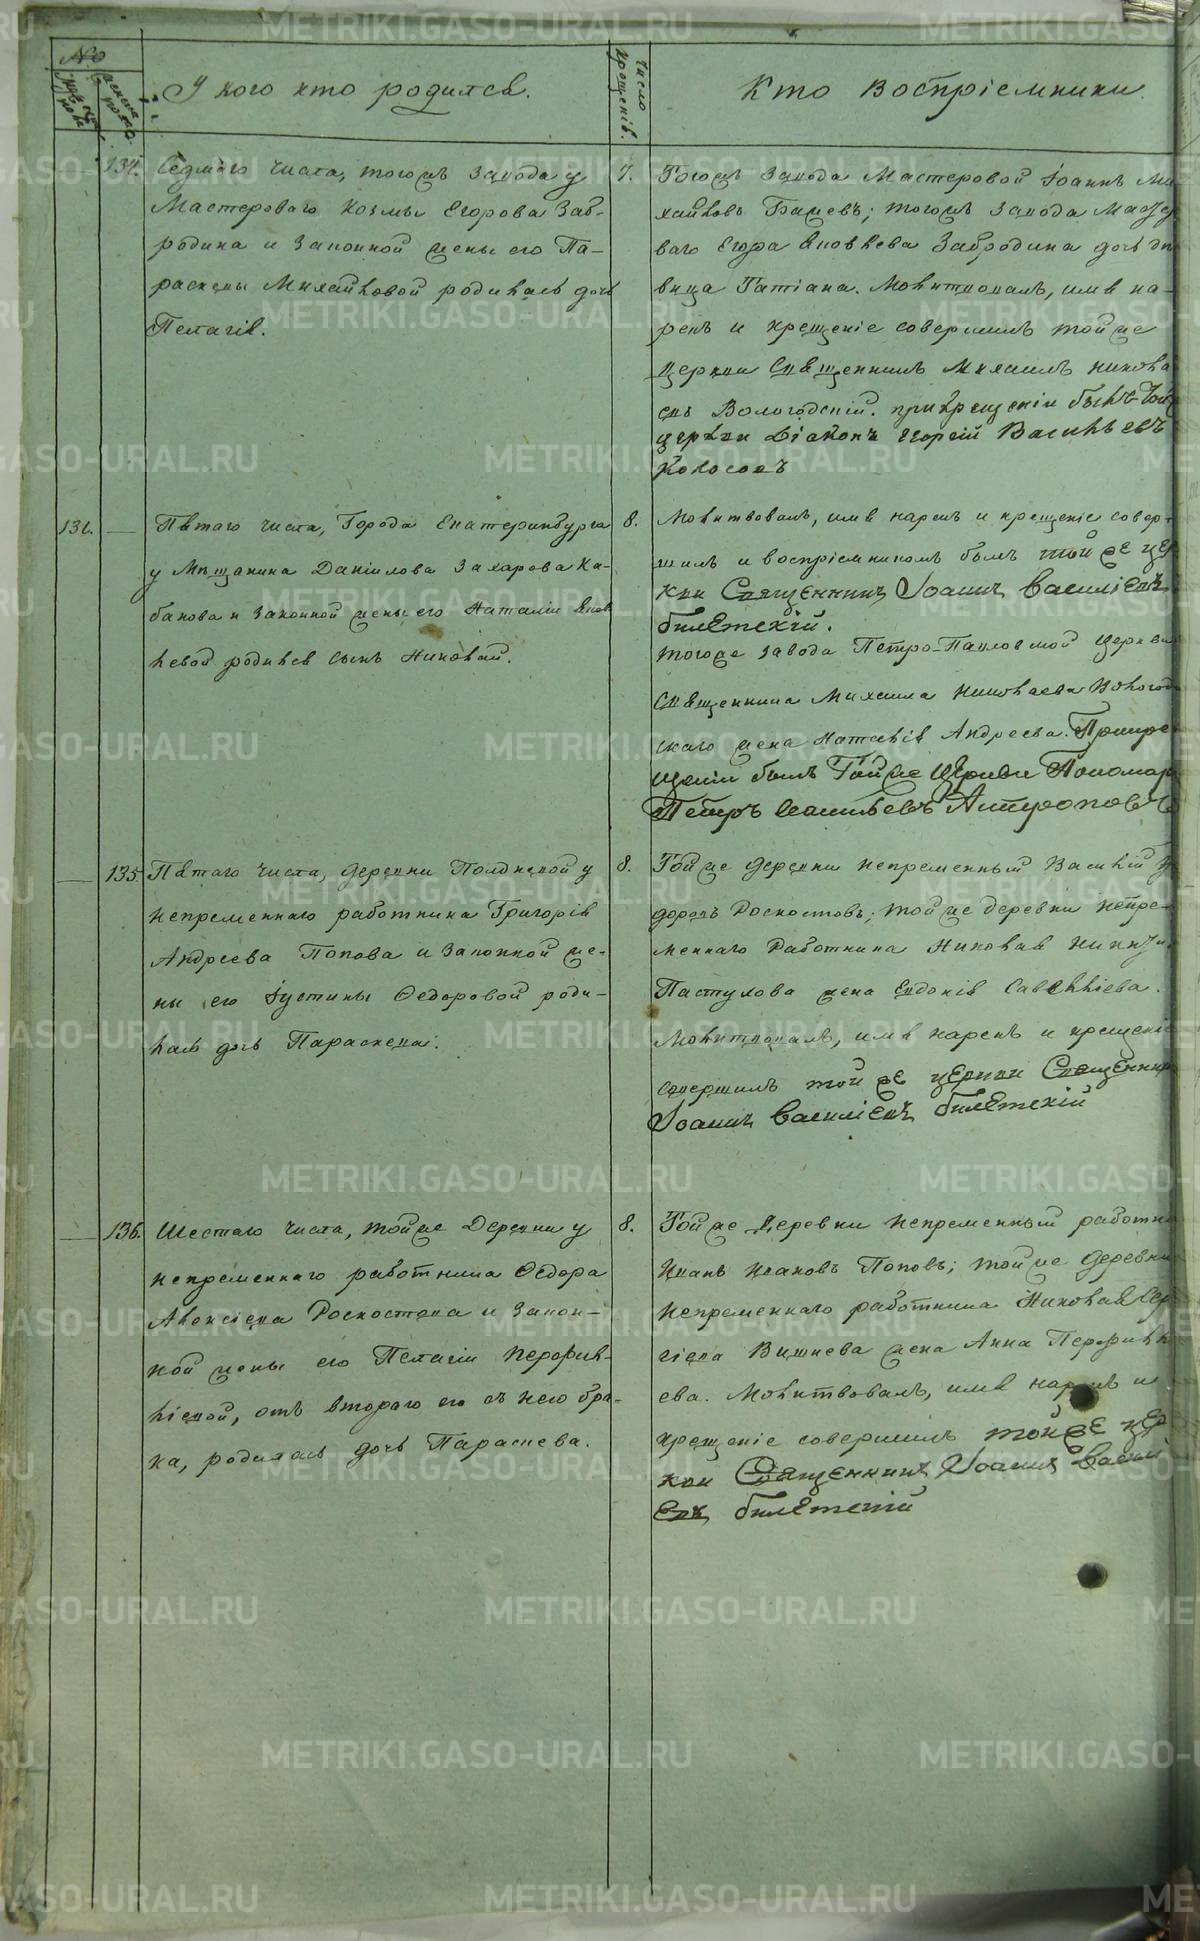 №
Мужеска пола
Женска пола
У кого кто родился.
Число крещенія.
Кто воспріемники
134.
Седмаго числа, тогожъ завода у
Мастероваго Козмы Егорова Заб-
родина и законной жены его Па-
раскевы Михайловой родилась дочь
Пелагія.
7.
Тогожъ завода Мастеровой Іоаннъ Ми
хайловъ Башевъ; тогожъ завода Масте
ваго Егора Яковлева Забродина дочь дѣ
вица Татіана. Молитвовалъ, имя на-
рекъ и крещеніе совершилъ той же
Церкви Священникъ Михаилъ Никола
евъ Вологодскій. при крещеніи былъ той
церкви Діаконъ Георгій Васильевъ
Колосовъ
131.
Пятаго числа, Города Екатеринбурга
у Мѣщанина Даніилова Захарова Ка-
банова и законной жены его Наталіи Яков
левой родился сынъ Николай.
8.
Молитвовалъ, имя нарекъ и крещеніе совер-
шилъ и воспріемникомъ былъ той же цер
кви Священникъ Іоаннъ Василіевъ
билетскій.
тогоже завода Петро-Павловской церкви
Священника Михаила Николаева Вологод
скаго жена Наталія Андреева. При кре
щеніи былъ Той же Церкви Пономарь
Петръ Васильевъ Антроповъ
135.
Пятаго числа, деревни Полдневой у
непременнаго работника Григорія
Андреева Попова и законной же-
ны его Іустины Ѳедоровой роди-
лась дочь Параскева.
8.
Той же деревни непременный Василій Ѳ
доровъ Роскостовъ; той же деревни непре-
меннаго Работника Николая Никит
Пастухова жена Евдокія Савелліева.
Молитвовалъ, имя нарекъ и крещеніе
совершилъ той же церкви Священникъ
Іоаннъ Василіевъ билетскій
136.
Шестаго числа, той же Деревни у
непременнаго работника Ѳедора
Алексіева Роскостова и закон-
ной жены его Пелагіи Перфил-
ліевой, отъ втораго его съ нею бра-
ка, родилась дочь Параскева.
8.
Той же Деревни непременный работни
Иванъ Исаковъ Поповъ; той же деревни
непременнаго работника Николая Сер
гіева Вишнева жена Анна Перфилл
ева. Молитвовалъ, имя нарекъ и
крещеніе совершилъ той же цер
кви Священникъ Іоаннъ Васил
евъ билетскій